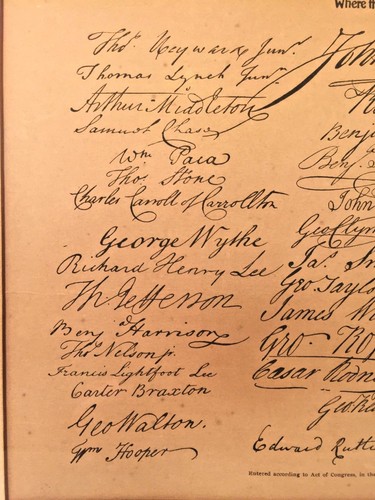 Where th
Thos. Heyward Junr.
Thomas Lynch Junr.
Arthur Middleton
Samuel Chase
Wm. Paca
Thos. Stone
Charles Carroll of Carrollton
George Wythe
Richard Henry Lee
Th. Jefferson
Benj. Harrison
Thos. Nelson jr.
Francis Lightfoot Lee
Carter Braxton
Geo Walton.
Wm Hooper
John
Benj
Benj.
John
Geo Clym
Jas. Sm
Geo. Taylo
James W
Geo. Ro
Caesar Rodn
Geo. Re
Edward Rutl
Entered according to Act of Congress, in the